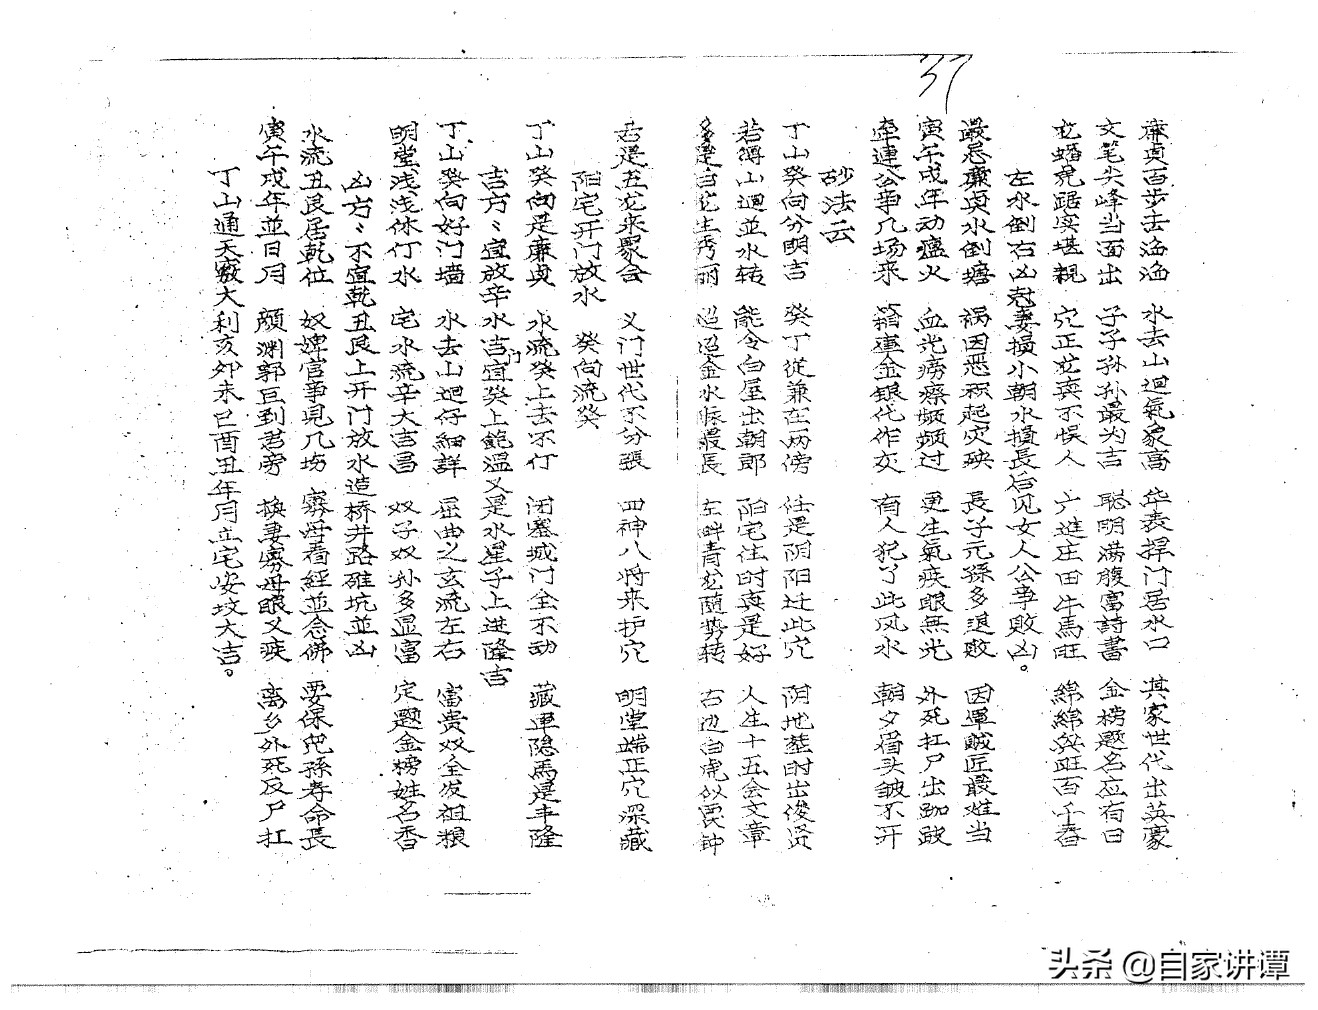 37
廉貞百步去滔滔 水去山迴氣象高 华表捍门居水口 其家世代出英豪
文笔尖峰当面出 子子孙孙最为吉 聪明满腹富詩書 金榜题名应有日
龙蟠虎踞实堪親 穴正龙真不悮人 广进庄田牛馬旺 綿綿興旺百千春
左水倒右凶尅妻損小朝水損長后见女人公事败凶。
最忌廉貞水倒塘 祸因恶积起灾殃 長子元孫多退败 因軍贼匠最难当
寅午戌年动瘟火 血光痨瘵频频过 更生氣疾眼無光 外死扛尸出跏跛
牵連公事几场来 箱連金银代作灾 有人犯了此风水 朝夕眉头皱不开
砂法云
丁山癸向分明吉 癸丁從兼在两傍 任是阴阳迁此穴 阴地葬时出俊贤
若得山迴並水转 能令白屋出朝郎 阳宅住时真是好 人生十五会文章
多是白龙生秀丽 迢迢金水脉最長 左畔青龙随势转 右边白虎似覆钟
若是五龙来聚会 义门世代不分張 四神八将来护穴 明堂端正穴深藏
阳宅开门放水 癸向流癸
丁山癸向是廉貞 水流癸上去不仃 闭塞城门全不动 藏軍隐馬是丰隆
吉方〻宜放辛水吉门宜癸上飽溫又是水星子上进隆吉
丁山癸向好门墙 水去山迴仔細詳 屈曲之玄流左右 富贵双全发祖粮
明堂浅浅休仃水 宅水流辛大吉昌 双子双孙多显富 定题金榜姓名香
凶方〻不宜乾丑艮上开门放水造桥井路碓坑並凶
水流丑艮居乾位 奴婢官事見几场 寡母看經並念佛 要保兒孫寿命長
寅午戌年並日月 顔渊郭巨到君旁 换妻寡母眼又疾 离乡外死反尸扛
丁山通天竅大利亥卯未巳酉丑年月立宅安坟大吉。
头条 @自家讲谭